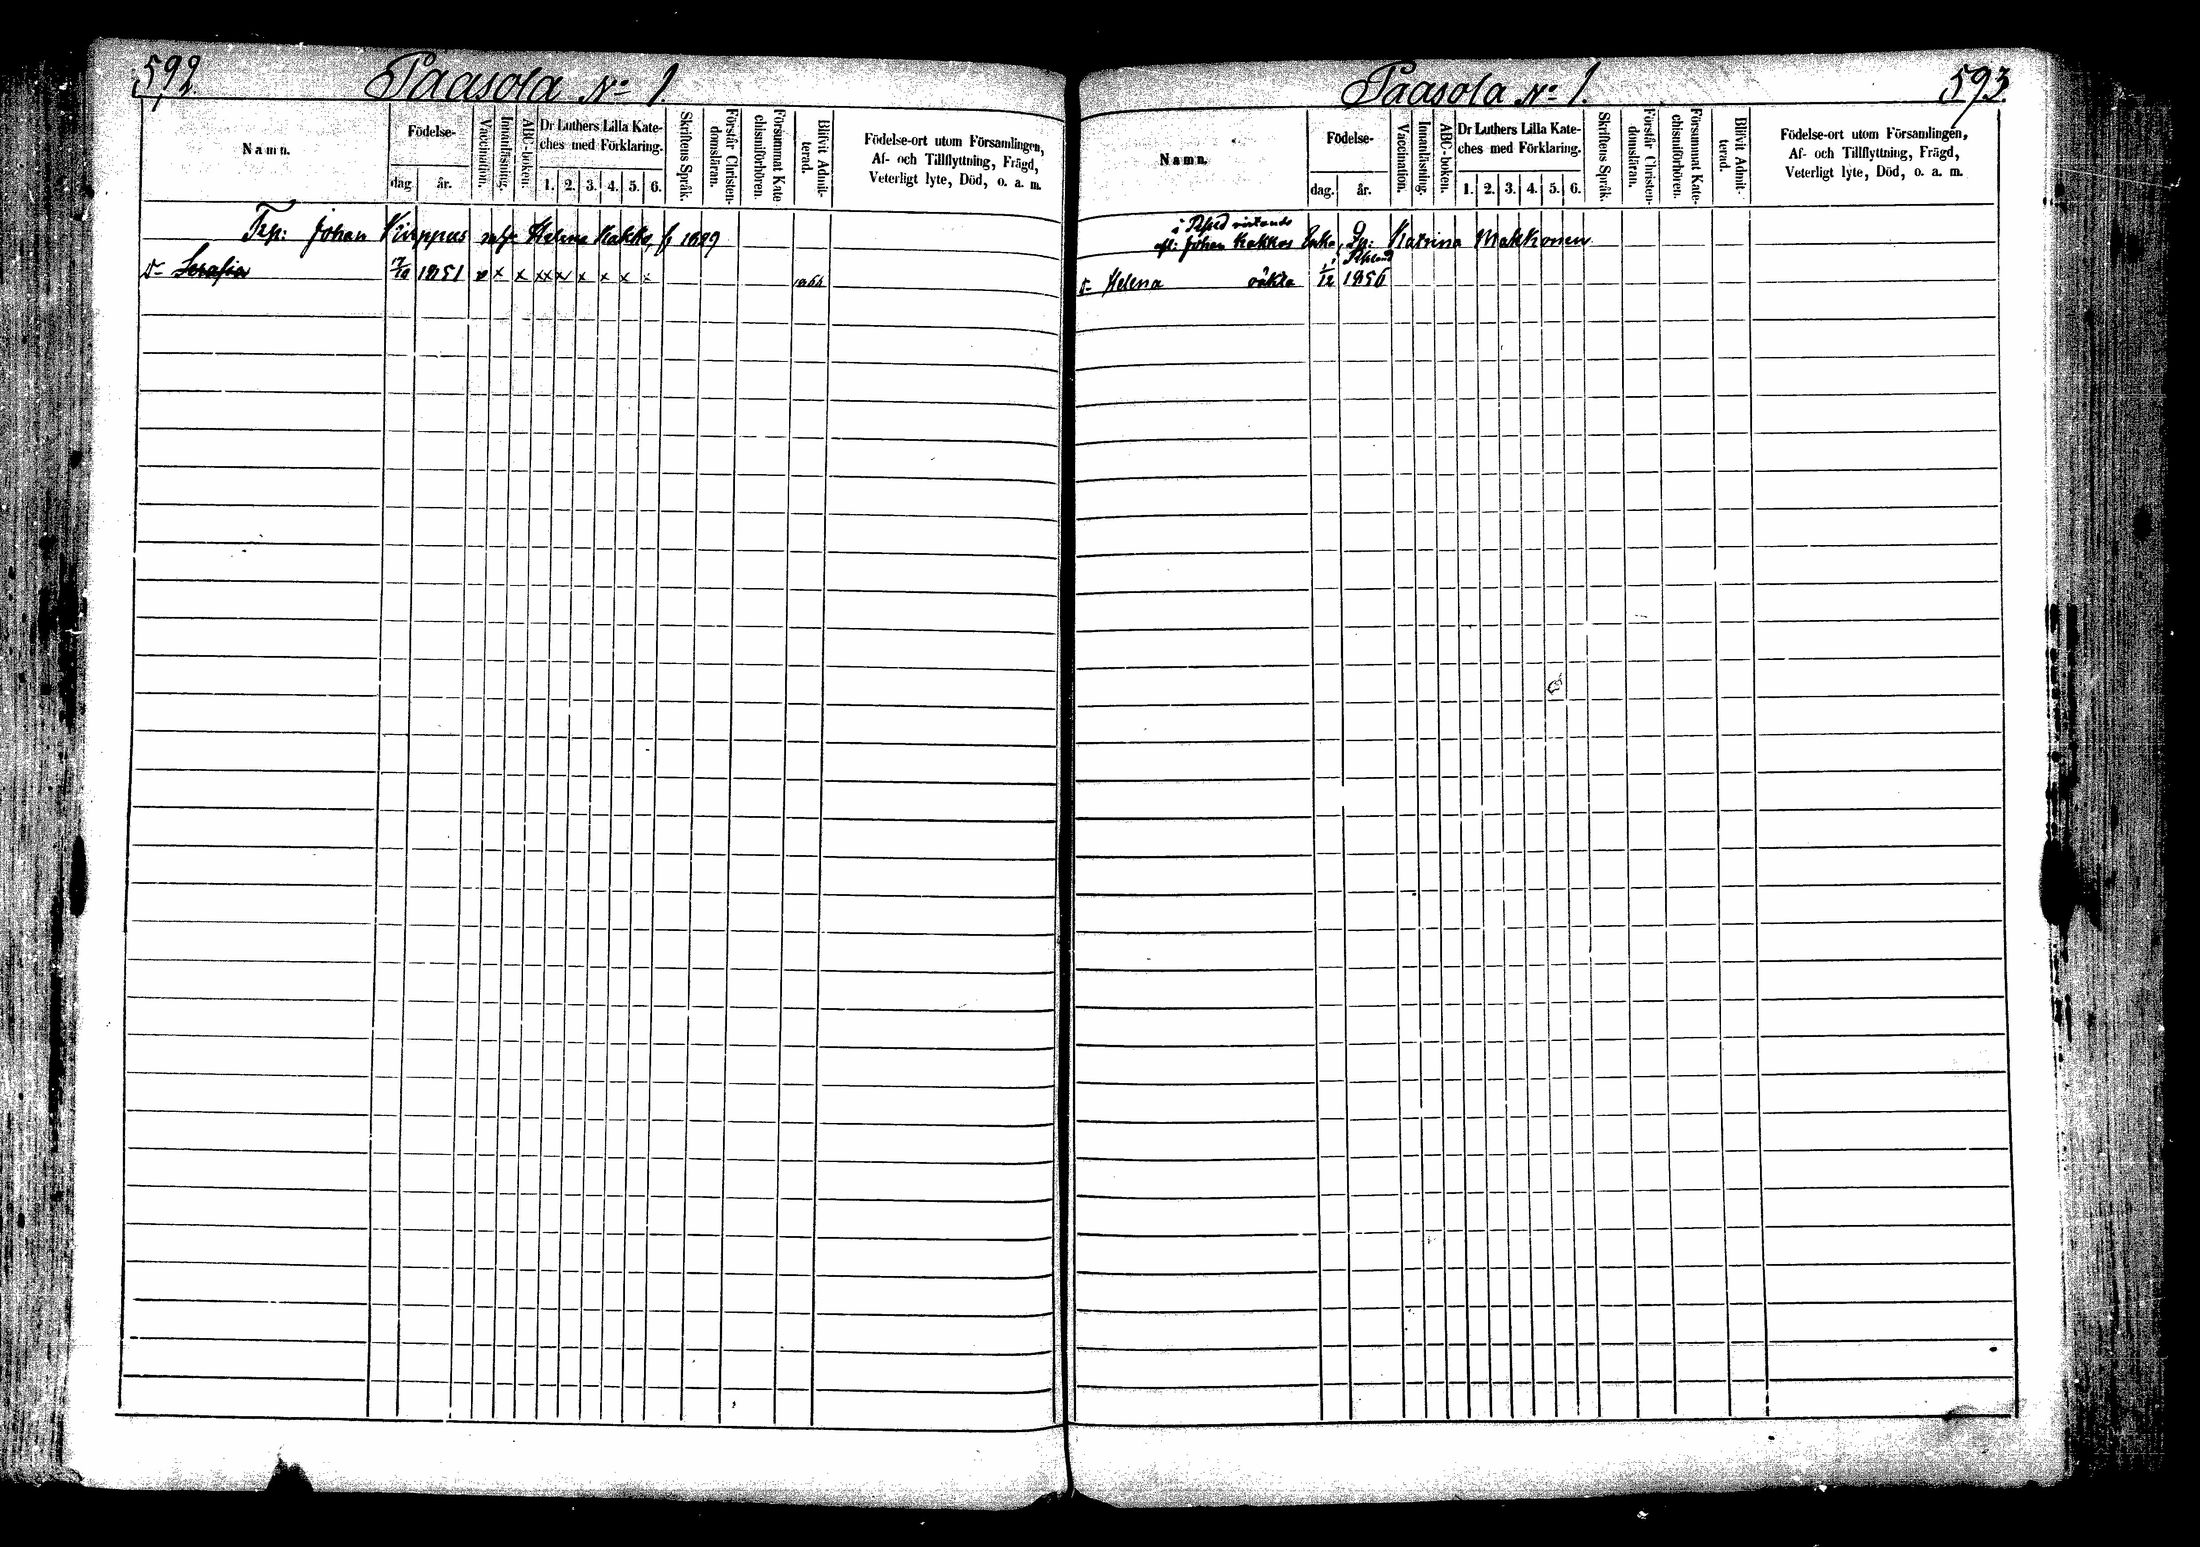 592.
Paasola No 1.
Namn.
Födelse-
dag.
år.
Vaccination.
Innanläsning.
ABC-boken.
Dr Luthers Lilla Kate-
ches med Förklaring.
1. 2. 3. 4. 5. 6.
Skriftens Språk.
Förstår Christen-
domsläran.
Försummat Kate
chismiförhören.
Blifvit Admit-
terad.
Födelse-ort utom Församlingen,
Af- och Tillflyttning, Frägd,
Veterligt lyte, Död, o. a. m.
Johan Helena Kakko, f. 1829
D- Serafia 7/10 1851 x x x xx x x x x x
593.
Paasola No 1.
Namn.
Födelse-
dag.
år.
Vaccination.
Innanläsning.
ABC-boken.
Dr Luthers Lilla Kate-
ches med Förklaring.
1. 2. 3. 4. 5. 6.
Skriftens Språk.
Förstår Christen-
domsläran.
Försummat Kate-
chismiförhören.
Blifvit Admit-
terad.
Födelse-ort utom Församlingen,
Af- och Tillflyttning, Frägd,
Veterligt lyte, Död, o. a. m.
i
afl: Johan Kakkos Enka, Katrina Makkonen
D- Helena oäkta 1/12 1856